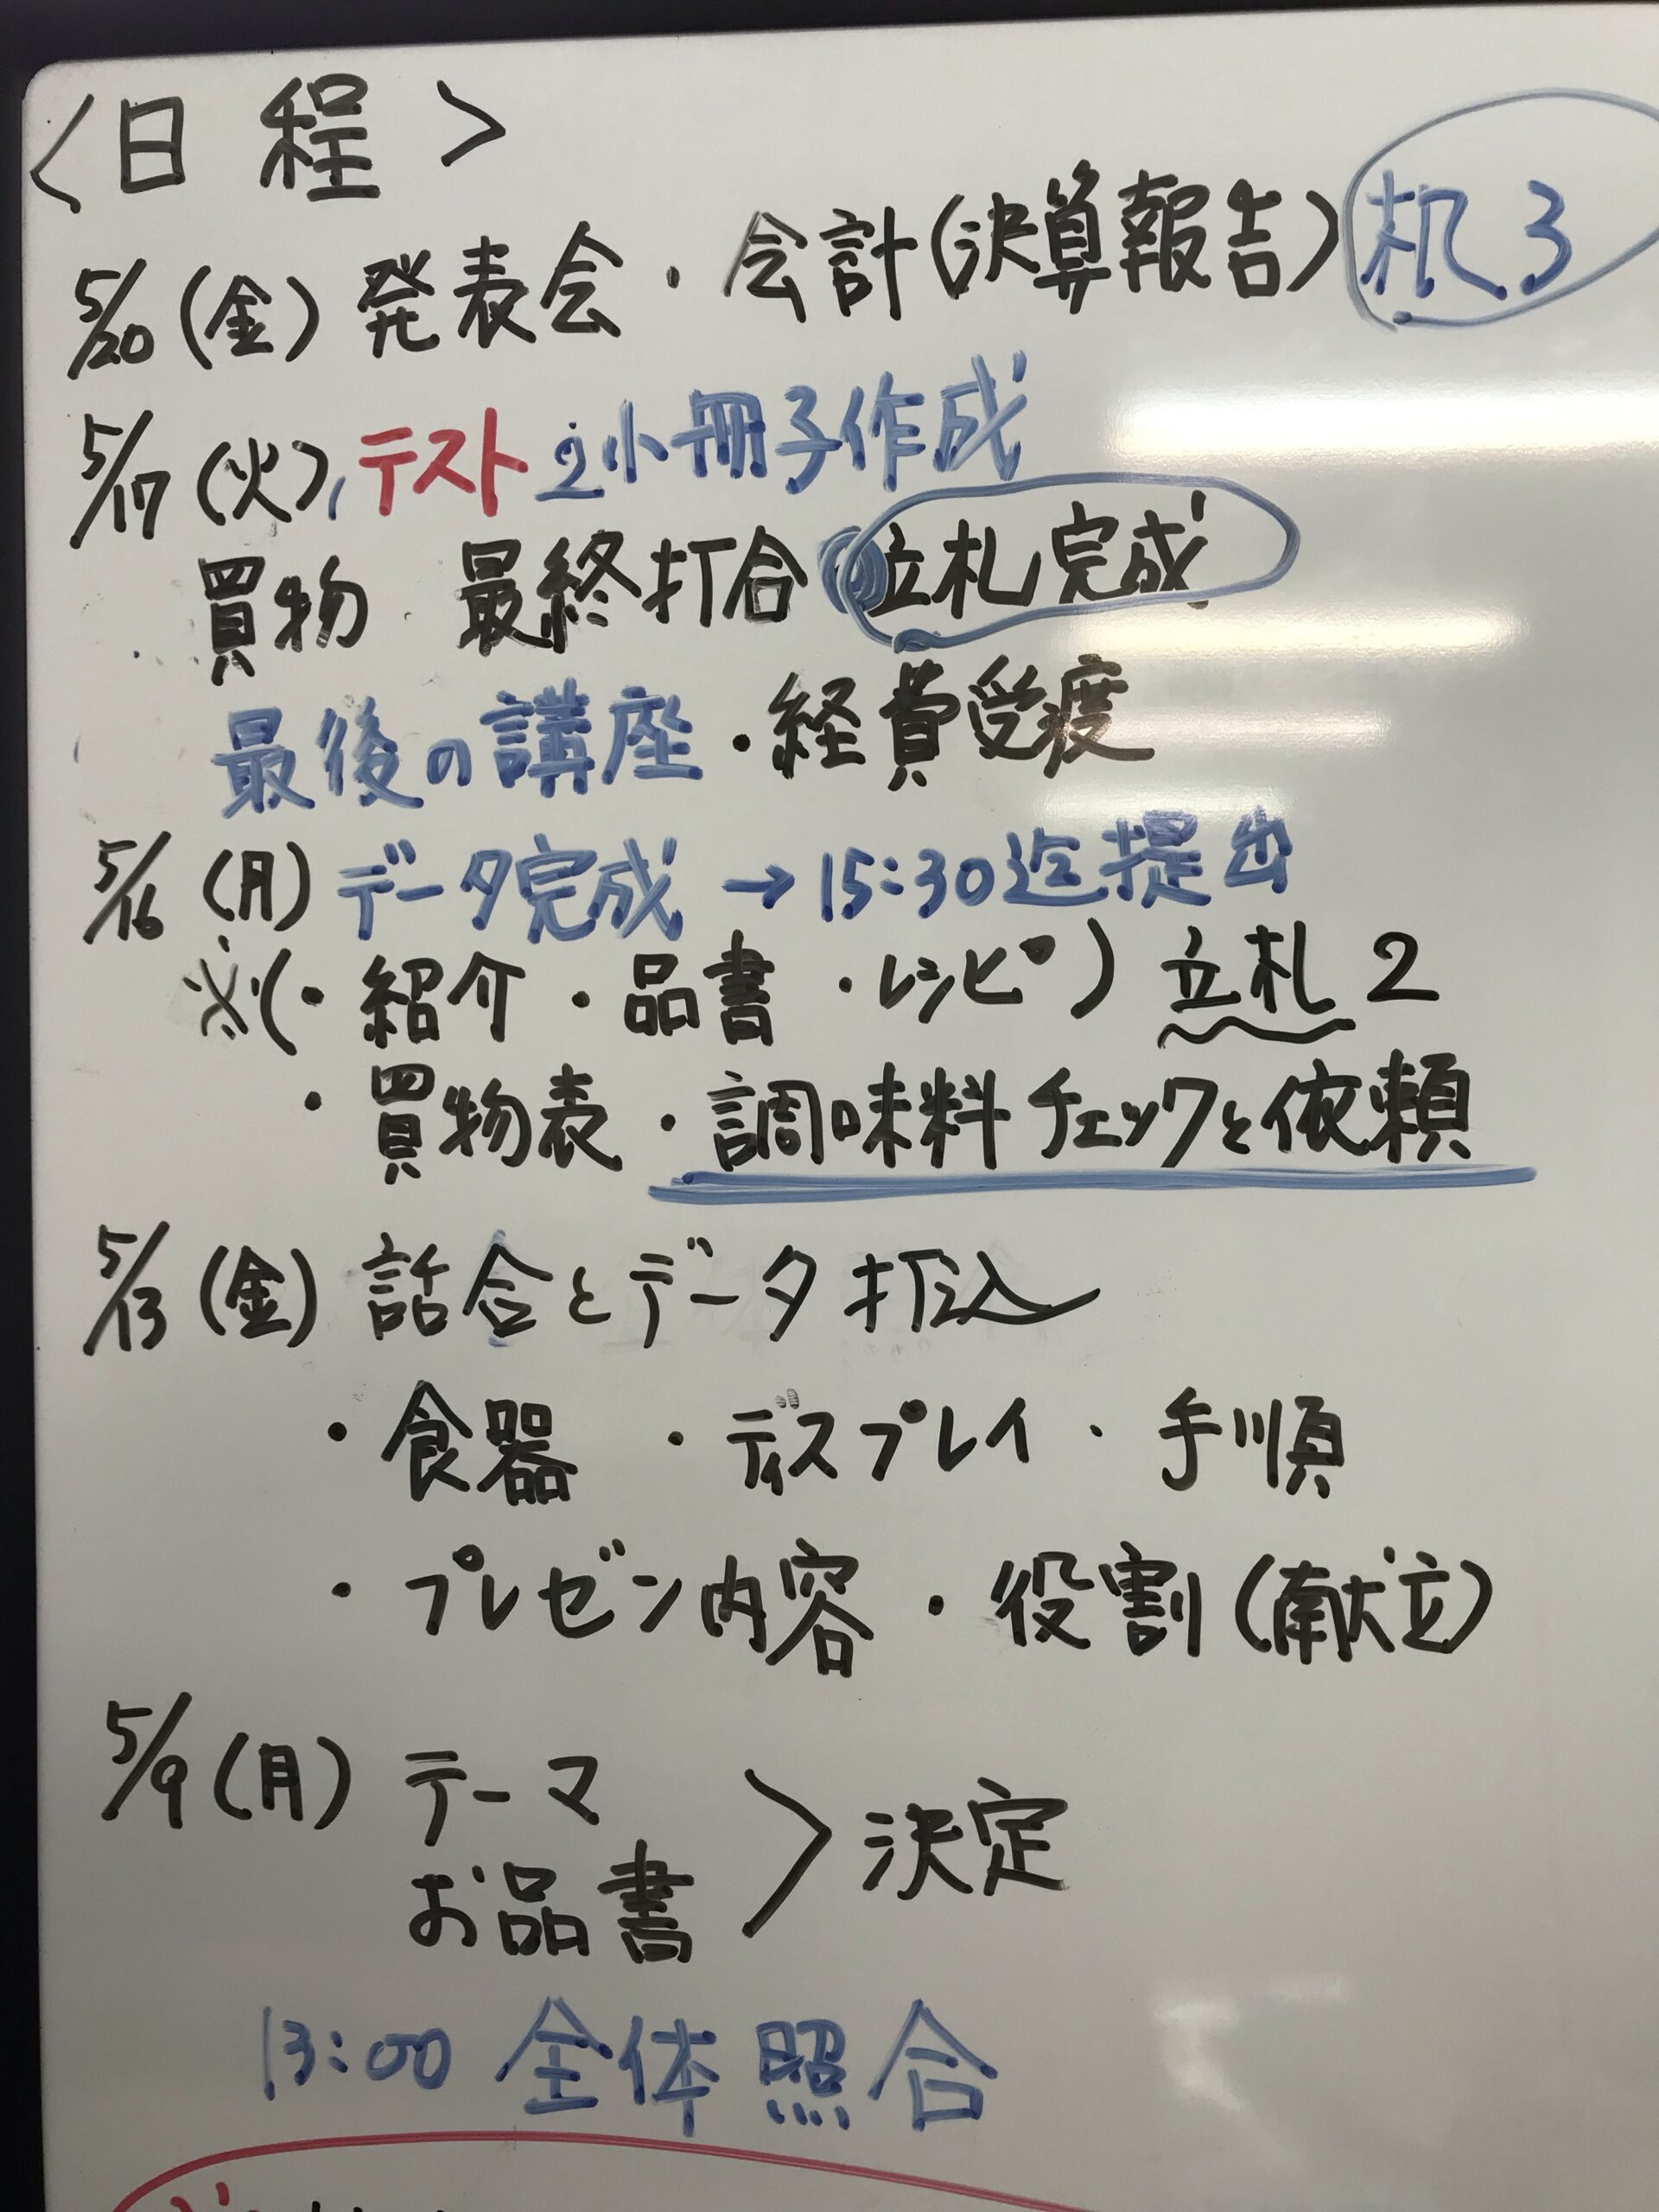 <日程>
5/20(金)発表会・会計(決算報告)机3
5/17(火),テスト2小冊子作成
買物 最終打合 立札完成
最後の講座・経費受渡
5/16(月)データ完成→15:30迄提出
※(・紹介・品書・レシピ)立札2
・買物表・調味料チェックと依頼
5/13(金)話合とデータ打込
・食器・ディスプレイ・手順
・プレゼン内容・役割(献立)
5/9(月)テーマ
お品書>決定
13:00全体照合